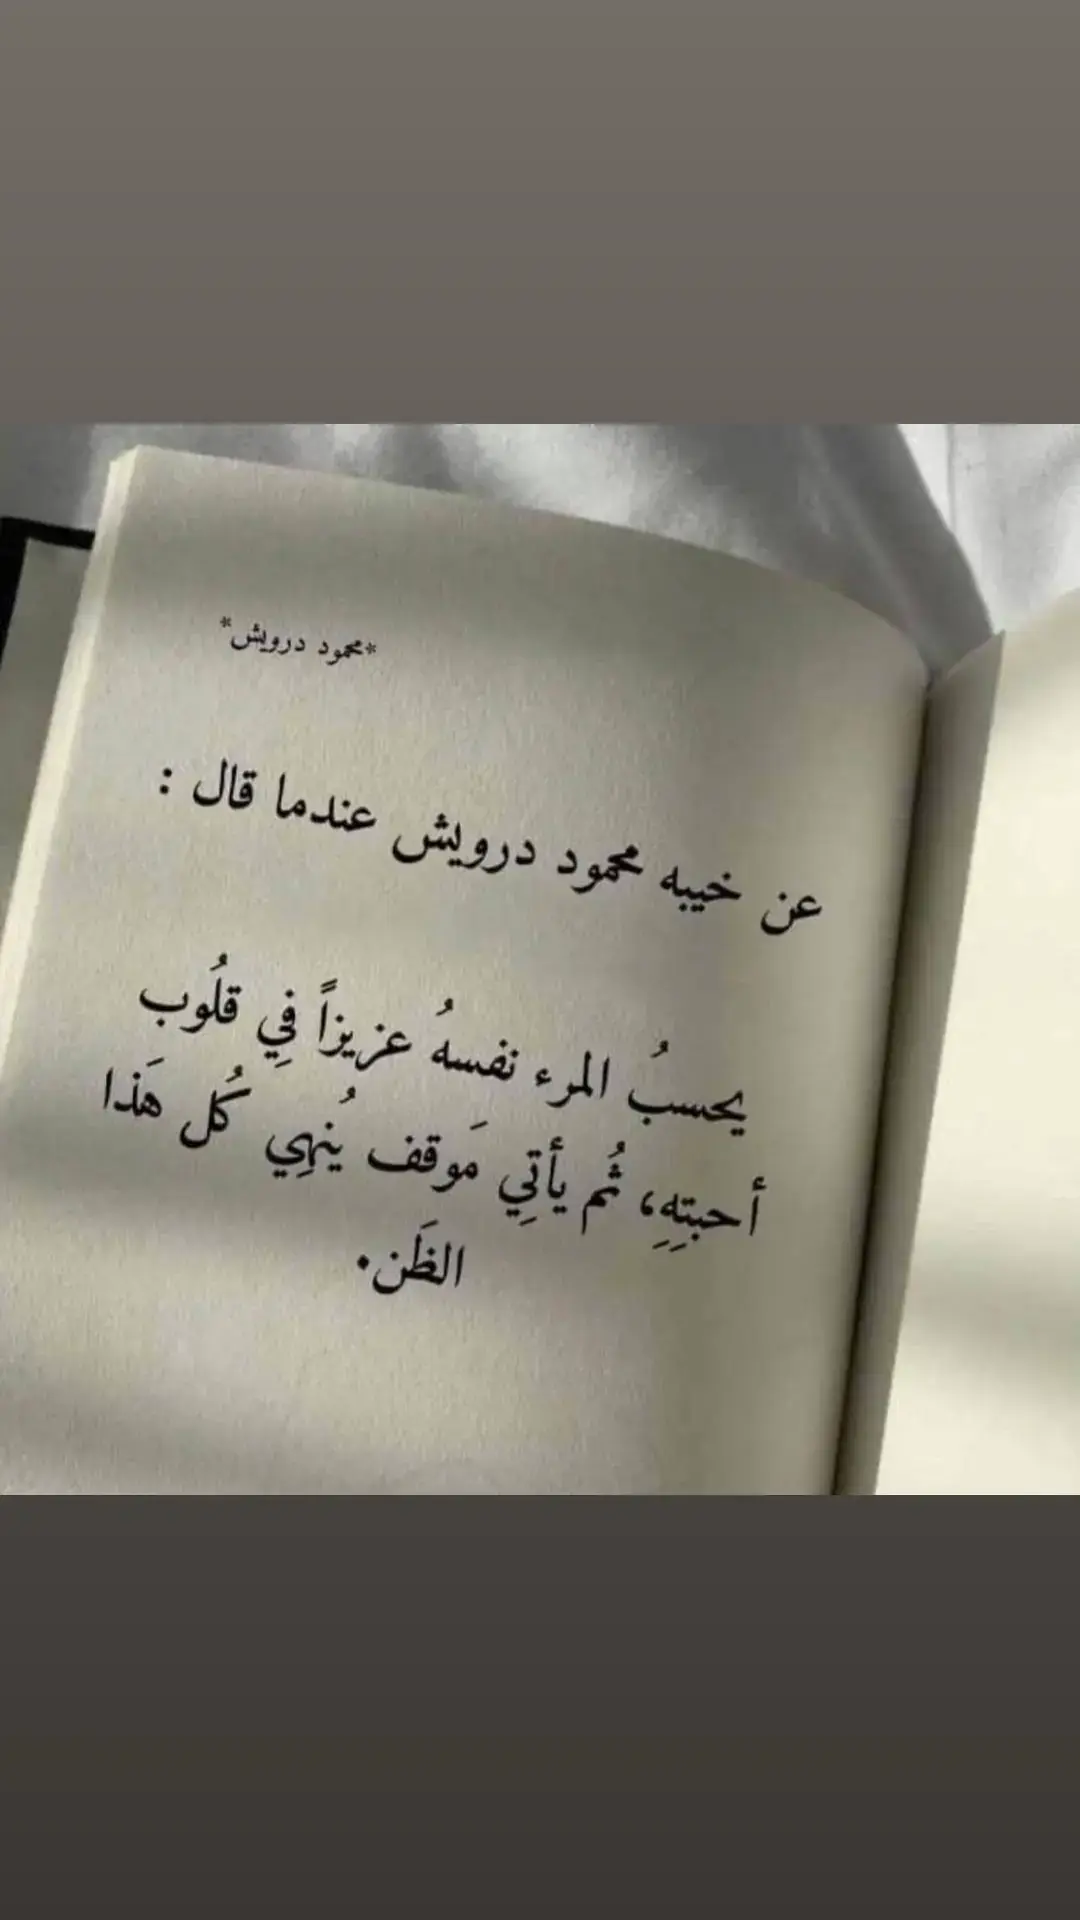 *محمود درويش*
عن خيبه محمود درويش عندما قال :
يحسبُ المرء نفسهُ عزيزاً فِي قلُوب
أحبتِهِ، ثُم يأتِي مَوقف يُنهِي كُل هَذا
الظَن.